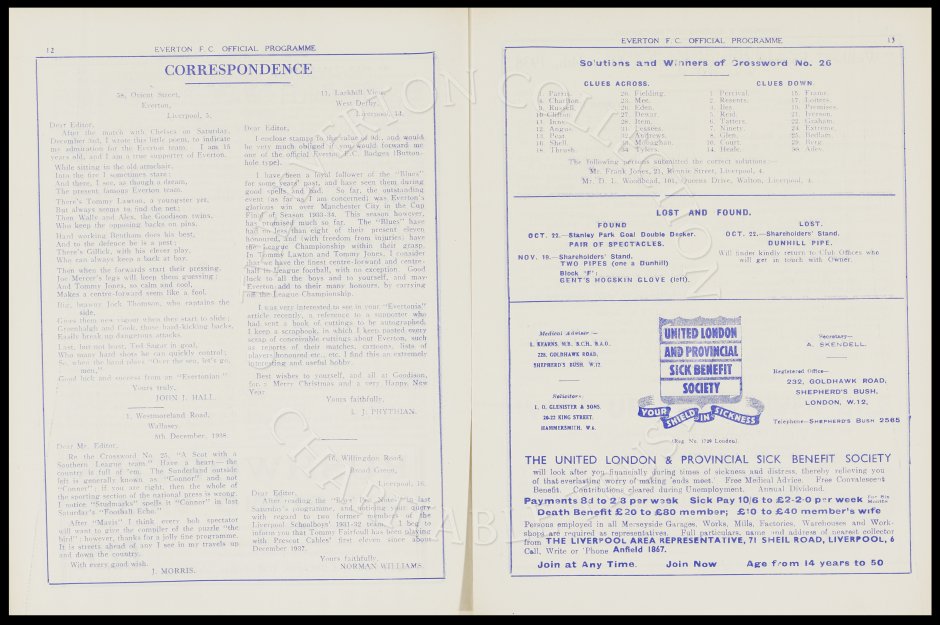 12
EVERTON F.C. OFFICIAL PROGRAMME
CORRESPONDENCE
58, Orient Street,
Everton,
Liverpool, 5.
Dear Editor,
After the match with Chelsea on Saturday,
December 3rd, I wrote this little poem, to indicate
my admiration of the Everton team. I am 15
years old, and I am a true supporter of Everton.
While sitting in the old armchair,
Into the fire I sometimes stare;
And there, I see, as though a dream,
The present famous Everton team.
There's Tommy Lawton, a youngster yet,
But always seems to find the net;
Then Walls and Alex, the Goodison twins,
Who keep the opposing backs on pins.
Hard working Bentham does his best,
And to the defence he is a pest;
There's Gillick, with his clever play,
Who can always keep a back at bay.
Then when the forwards start their pressing,
Joe Mercer's legs will keep them guessing;
And Tommy Jones, so calm and cool,
Makes a centre-forward seem like a fool.
Big, heaver Jock Thomson, who captains the
side,
Gives them new vigour when they start to slide;
Greenhalgh and Cook, those hard-kicking backs,
Easily break up dangerous attacks.
Last, but not least, Ted Sagar in goal,
Who many hard shots he can quickly control;
So, when the land rings over the sea, let's go,
men,"
Good luck and success from an "Evertonian."
Yours truly,
JOHN J. HALL.
1, Westmoreland Road,
Wallasey
5th December, 1938
Dear Mr. Editor,
Re the Crossword No. 25, "A Scot with a
Southern League team." Have a heart—the
country is full of 'em. The Sunderland outside
left is generally known as "Connor" and not
"Connor"—if you are right, then the whole of
the sporting section of the national press is wrong.
I notice "Studmarks" spells it "Connor" in last
Saturday's "Football Echo."
After "Mavis" I think every bob spectator
will want to give the compiler of the puzzle "the
bird"; however, thanks for a jolly fine programme.
It is streets ahead of any I see in my travels up
and down the country.
With every good wish.
J. MORRIS.
17, Larkhill View,
West Derby,
Liverpool, 14.
Dear Editor,
I enclose stamps to the value of 9d., and would
be very much obliged if you would forward me
one of the official Everton F.C. Badges (Button-
hole type).
I have been a loyal follower of the "Blues"
for some years' past, and have seen them during
good spells and bad. So far, the outstanding
event (as far as I am concerned) was Everton's
glorious win over Manchester City in the Cup
Final of Season 1933-34. This season however,
has promised much so far. The "Blues" have
had no less than eight of their present eleven
honoured, and (with freedom from injuries) have
the League Championship within their grasp.
In Tommy Lawton and Tommy Jones, I consider
that we have the finest centre-forward and centre-
half in League football, with no exception. Good
luck to all the boys and to yourself, and may
Everton add to their many honours, by carrying
off the League Championship.
I was very interested to see in your "Evertonia"
article recently, a reference to a supporter who
had sent a book of cuttings to be autographed.
I keep a scrapbook, in which I keep pasted every
scrap of conceivable cuttings about Everton, such
as reports of their matches, cartoons, lists of
players honoured etc., etc. I find this an extremely
interesting and useful hobby.
Best wishes to yourself, and all at Goodison,
for a Merry Christmas and a very Happy New
Year.
Yours faithfully,
L. J. PRYTHIAN.
16, Willingdon Road,
Broad Green,
Liverpool, 16.
Dear Editor,
After reading the "Boys' Pen" Notes in last
Saturday's programme, and noticing your query
with regard to two former members of the
Liverpool Schoolboys' 1931-32 team, I beg to
inform you that Tommy Fairfoull has been playing
with Prescot Cables' first eleven since about
December 1937.
Yours faithfully,
NORMAN WILLIAMS.
EVERTON F.C. OFFICIAL PROGRAMME
13
Solutions and Winners of Crossword No. 26
CLUES ACROSS. CLUES DOWN.
1. Parris. 20. Fielding. 1. Percival. 15. Frame.
4. Charlton. 23. Men. 2. Resents. 17. Loiters.
9. Russell. 26. Eden. 3. Iles. 19. Premiers.
10. Clifton. 27. Dewar. 5. Read. 21. Iverson.
11. Inns. 28. Item. 6. Tatters. 22. Graham.
12. Angus. 31. Lessees. 7. Ninety. 24. Extreme.
13. Peat. 32. Andrews. 8. Glen. 25. Bedlam.
16. Shell. 33. Monaghan. 10. Court. 29. Berg.
18. Thrush. 34. Tylers. 14. Heale. 30. Alex.
The following persons submitted the correct solutions:—
Mr. Frank Jones, 21, Rennie Street, Liverpool, 4.
Mr. D. I. Woodhead, 101, Queens Drive, Walton, Liverpool, 4.
LOST AND FOUND.
FOUND
OCT. 22.—Stanley Park Goal Double Decker.
PAIR OF SPECTACLES.
NOV. 19.—Shareholders' Stand,
TWO PIPES (one a Dunhill)
Block 'F':
GENT'S HOGSKIN GLOVE (left).
LOST.
OCT. 22.—Shareholders' Stand.
DUNHILL PIPE.
Will finder kindly return to Club Offices who
will get in touch with Owner.
Medical Adviser:—
L. KEARNS, M.B., B.CH., B.A.O.
229, GOLDHAWK ROAD,
SHEPHERD'S BUSH, W.12.
Solicitors:—
L. D. GLENISTER & SONS,
20-22 KING STREET,
HAMMERSMITH, W.6.
UNITED LONDON
AND PROVINCIAL
SICK BENEFIT
SOCIETY
YOUR SHIELD IN SICKNESS
(Reg. No. 1729 London).
Secretary—
A. SKENDELL.
Registered Office—
232, GOLDHAWK ROAD,
SHEPHERD'S BUSH,
LONDON, W.12,
Telephone—SHEPHERD'S BUSH 2565
THE UNITED LONDON & PROVINCIAL SICK BENEFIT SOCIETY
will look after you financially during times of sickness and distress, thereby relieving you
of that everlasting worry of making ends meet. Free Medical Advice. Free Convalescent
Benefit. Contributions cleared during Unemployment. Annual Dividend.
Payments 8d to 2/8 per week Sick Pay 10/6 to £2-2-0 per week for Six Months
Death Benefit £20 to £80 member; £10 to £40 member's wife
Persons employed in all Merseyside Garages, Works, Mills, Factories, Warehouses and Work-
shops are required as representatives. Full particulars, name and address of nearest collector
from THE LIVERPOOL AREA REPRESENTATIVE, 71 SHEIL ROAD, LIVERPOOL, 6
Call, Write or 'Phone Anfield 1867.
Join at Any Time. Join Now Age from 14 years to 50